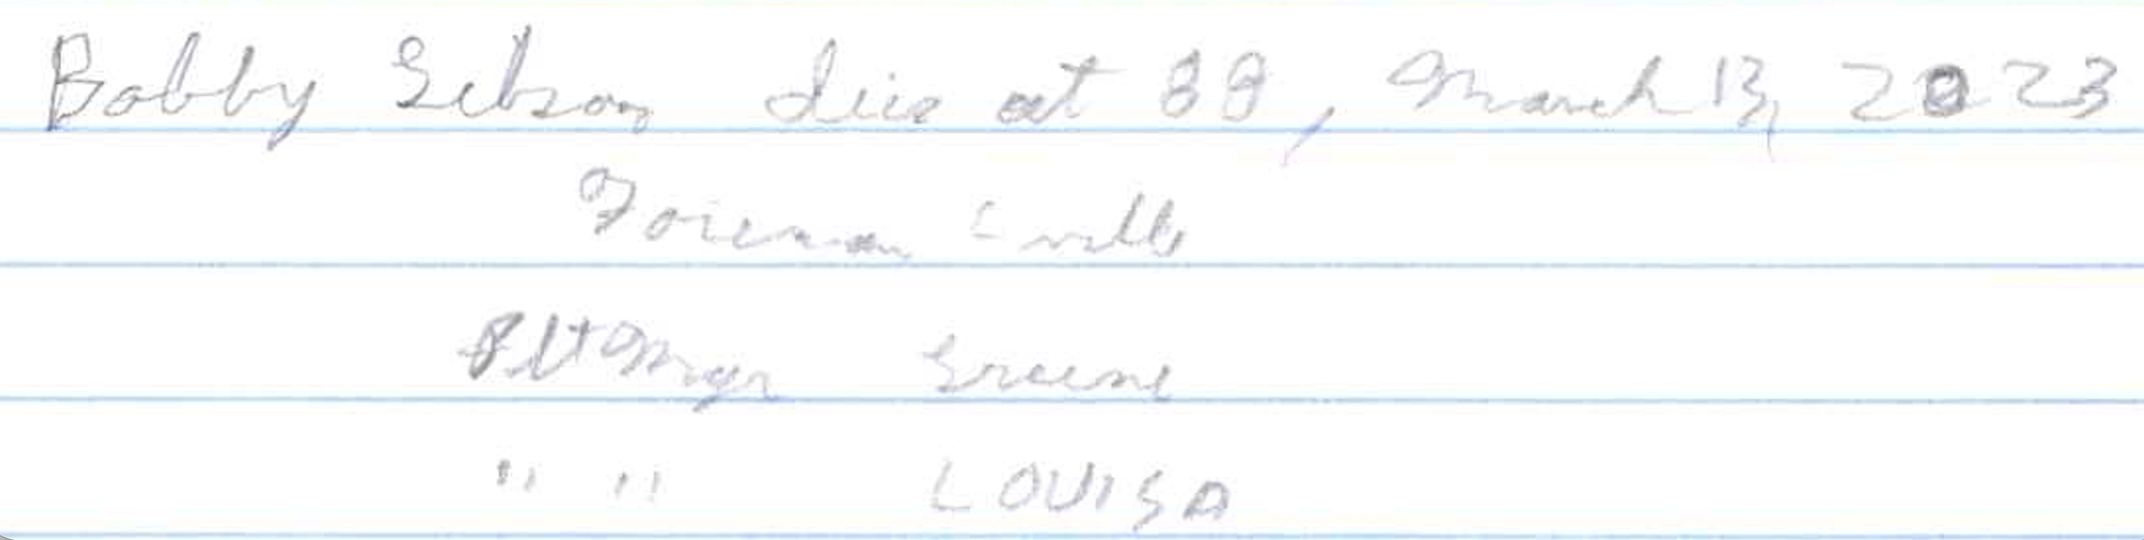 Bobby Gibson die at 88, March 13, 2023
Foreman C ville
Plt Mgr Greene
" " LOUISA